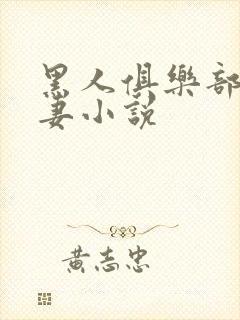 黑人俱樂部
妻小說
黃志忠